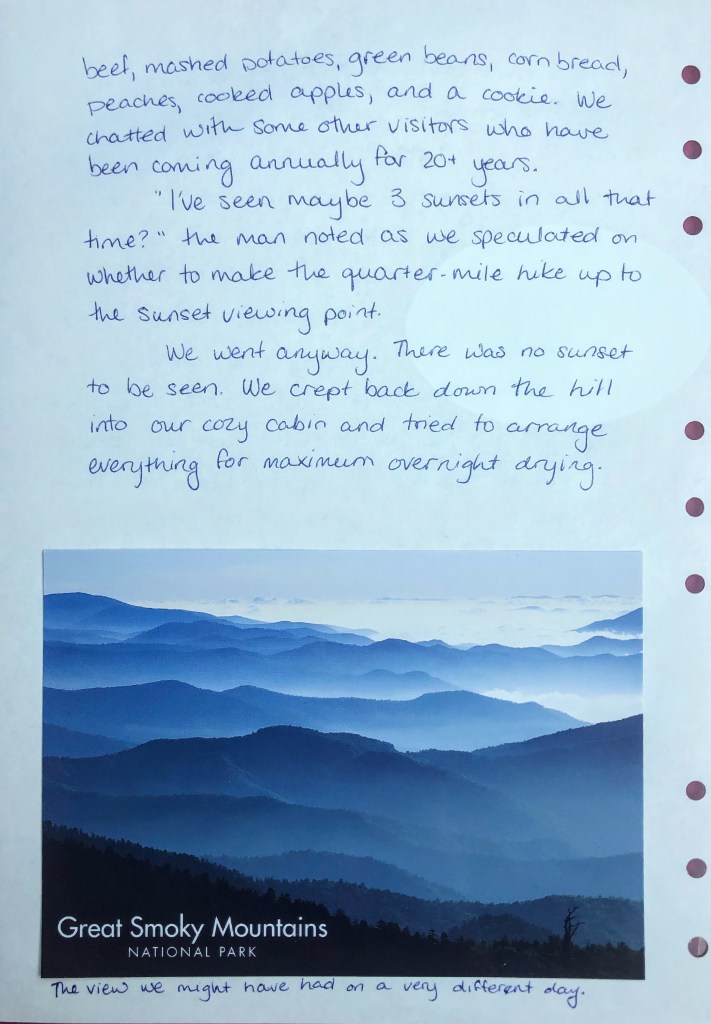 beef, mashed potatoes, green beans, corn bread,
peaches, cooked apples, and a cookie. We
chatted with some other visitors who have
been coming annually for 20+ years.
"I've seen maybe 3 sunsets in all that
time?" the man noted as we speculated on
whether to make the quarter-mile hike up to
the sunset viewing point.
We went anyway. There was no sunset
to be seen. We crept back down the hill
into our cozy cabin and tried to arrange
everything for maximum overnight drying.
Great Smoky Mountains
NATIONAL PARK
The view we might have had on a very different day.